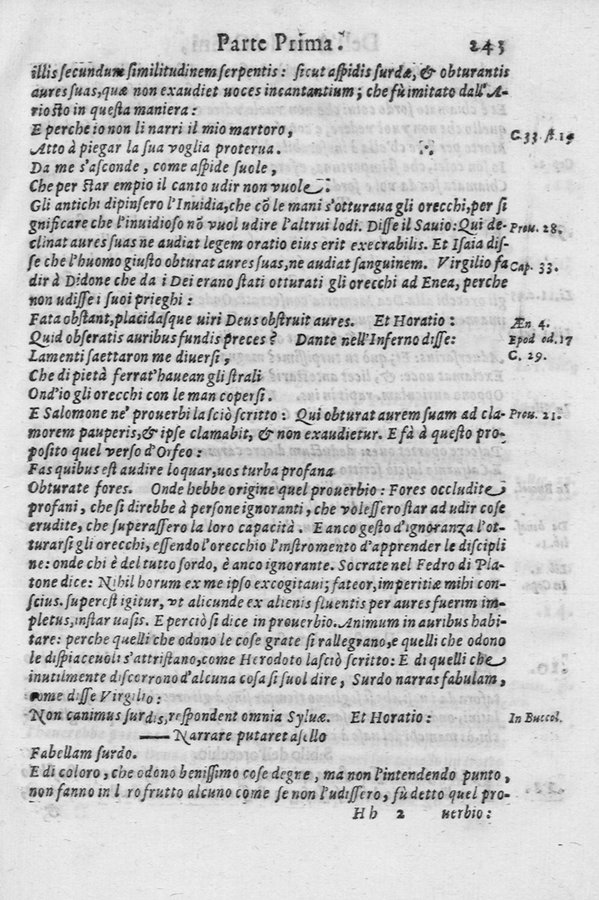 Parte Prima. 243
illis secundum similitudinem serpentis: sicut aspidis surdæ, & obturantis
aures suas, quæ non exaudiet uoces incantantium; che fù imitato dall'A-
riosto in questa maniera:
E perche io non li narri il mio martoro, C. 33. st. 15
Atto à piegar la sua voglia proterua.
Da me s'asconde, come aspide suole,
Che per star empio il canto udir non vuole.
Gli antichi dipinsero l'Inuidia, che cō le mani s'otturaua gli orecchi, per si
gnificare che l'inuidioso nō vuol udire l'altrui lodi. Disse il Sauio: Qui de- Prou. 28.
clinat aures suas ne audiat legem oratio eius erit execrabilis. Et Isaia dis-
se che l'huomo giusto obturat aures suas, ne audiat sanguinem. Virgilio fa Cap. 33.
dir à Didone che da i Dei erano stati otturati gli orecchi ad Enea, perche
non udisse i suoi prieghi:
Fata obstant, placidasque uiri Deus obstruit aures. Et Horatio: Æn 4.
Quid obseratis auribus fundis preces? Dante nell'Inferno disse: Epod od. 17
Lamenti saettaron me diuersi, C. 29.
Che di pietà ferrat'hauean gli strali
Ond'io gli orecchi con le man copersi.
E Salomone ne' prouerbi lasciò scritto: Qui obturat aurem suam ad cla- Prou. 21.
morem pauperis, & ipse clamabit, & non exaudietur. E fà à questo pro-
posito quel verso d'Orfeo:
Fas quibus est audire loquar, uos turba profana
Obturate fores. Onde hebbe origine quel prouerbio: Fores occludite
profani, che si direbbe à persone ignoranti, che volessero star ad udir cose
erudite, che superassero la loro capacità. E anco gesto d'ignoranza l'ot-
turarsi gli orecchi, essendo l'orecchio l'instromento d'apprender le discipli
ne: onde chi è del tutto sordo, è anco ignorante. Socrate nel Fedro di Pla-
tone dice: Nihil horum ex me ipso excogitaui; fateor, imperitiæ mihi con-
scius. superest igitur, vt alicunde ex alienis fluentis per aures fuerim im-
pletus, instar uasis. E perciò si dice in prouerbio. Animum in auribus habi-
tare: perche quelli che odono le cose grate si rallegrano, e quelli che odono
le dispiaceuoli s'attristano, come Herodoto lasciò scritto: E di quelli che
inutilmente discorrono d'alcuna cosa si suol dire, Surdo narras fabulam,
come disse Virgilio:
Non canimus surdis, respondent omnia Syluæ. Et Horatio: In Buccol.
—— Narrare putaret asello
Fabellam surdo.
E di coloro, che odono benissimo cose degne, ma non l'intendendo punto,
non fanno in l ro frutto alcuno come se non l'udissero, fù detto quel pro-
Hh 2 uerbio: